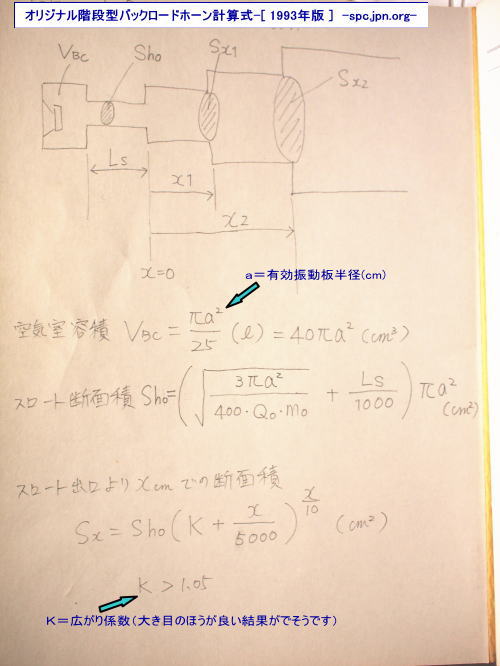 オリジナル階段型バックロードホーン計算式-[ 1993年版 ] -spc.jpn.org-
VBC Sho Sx1 Sx2
Ls
x1
x2
x=0
a=有効振動板半径(cm)
空気室容積 VBC = πa²/25 (l) = 40πa² (cm³)
スロート断面積 Sho=(√(3πa²/(400·Qo·mo)) + Ls/1000) πa² (cm²)
スロート出口より xcm での断面積
Sx = Sho (K + x/5000)^(x/10) (cm²)
K > 1.05
K=広がり係数(大き目のほうが良い結果がでそうです)